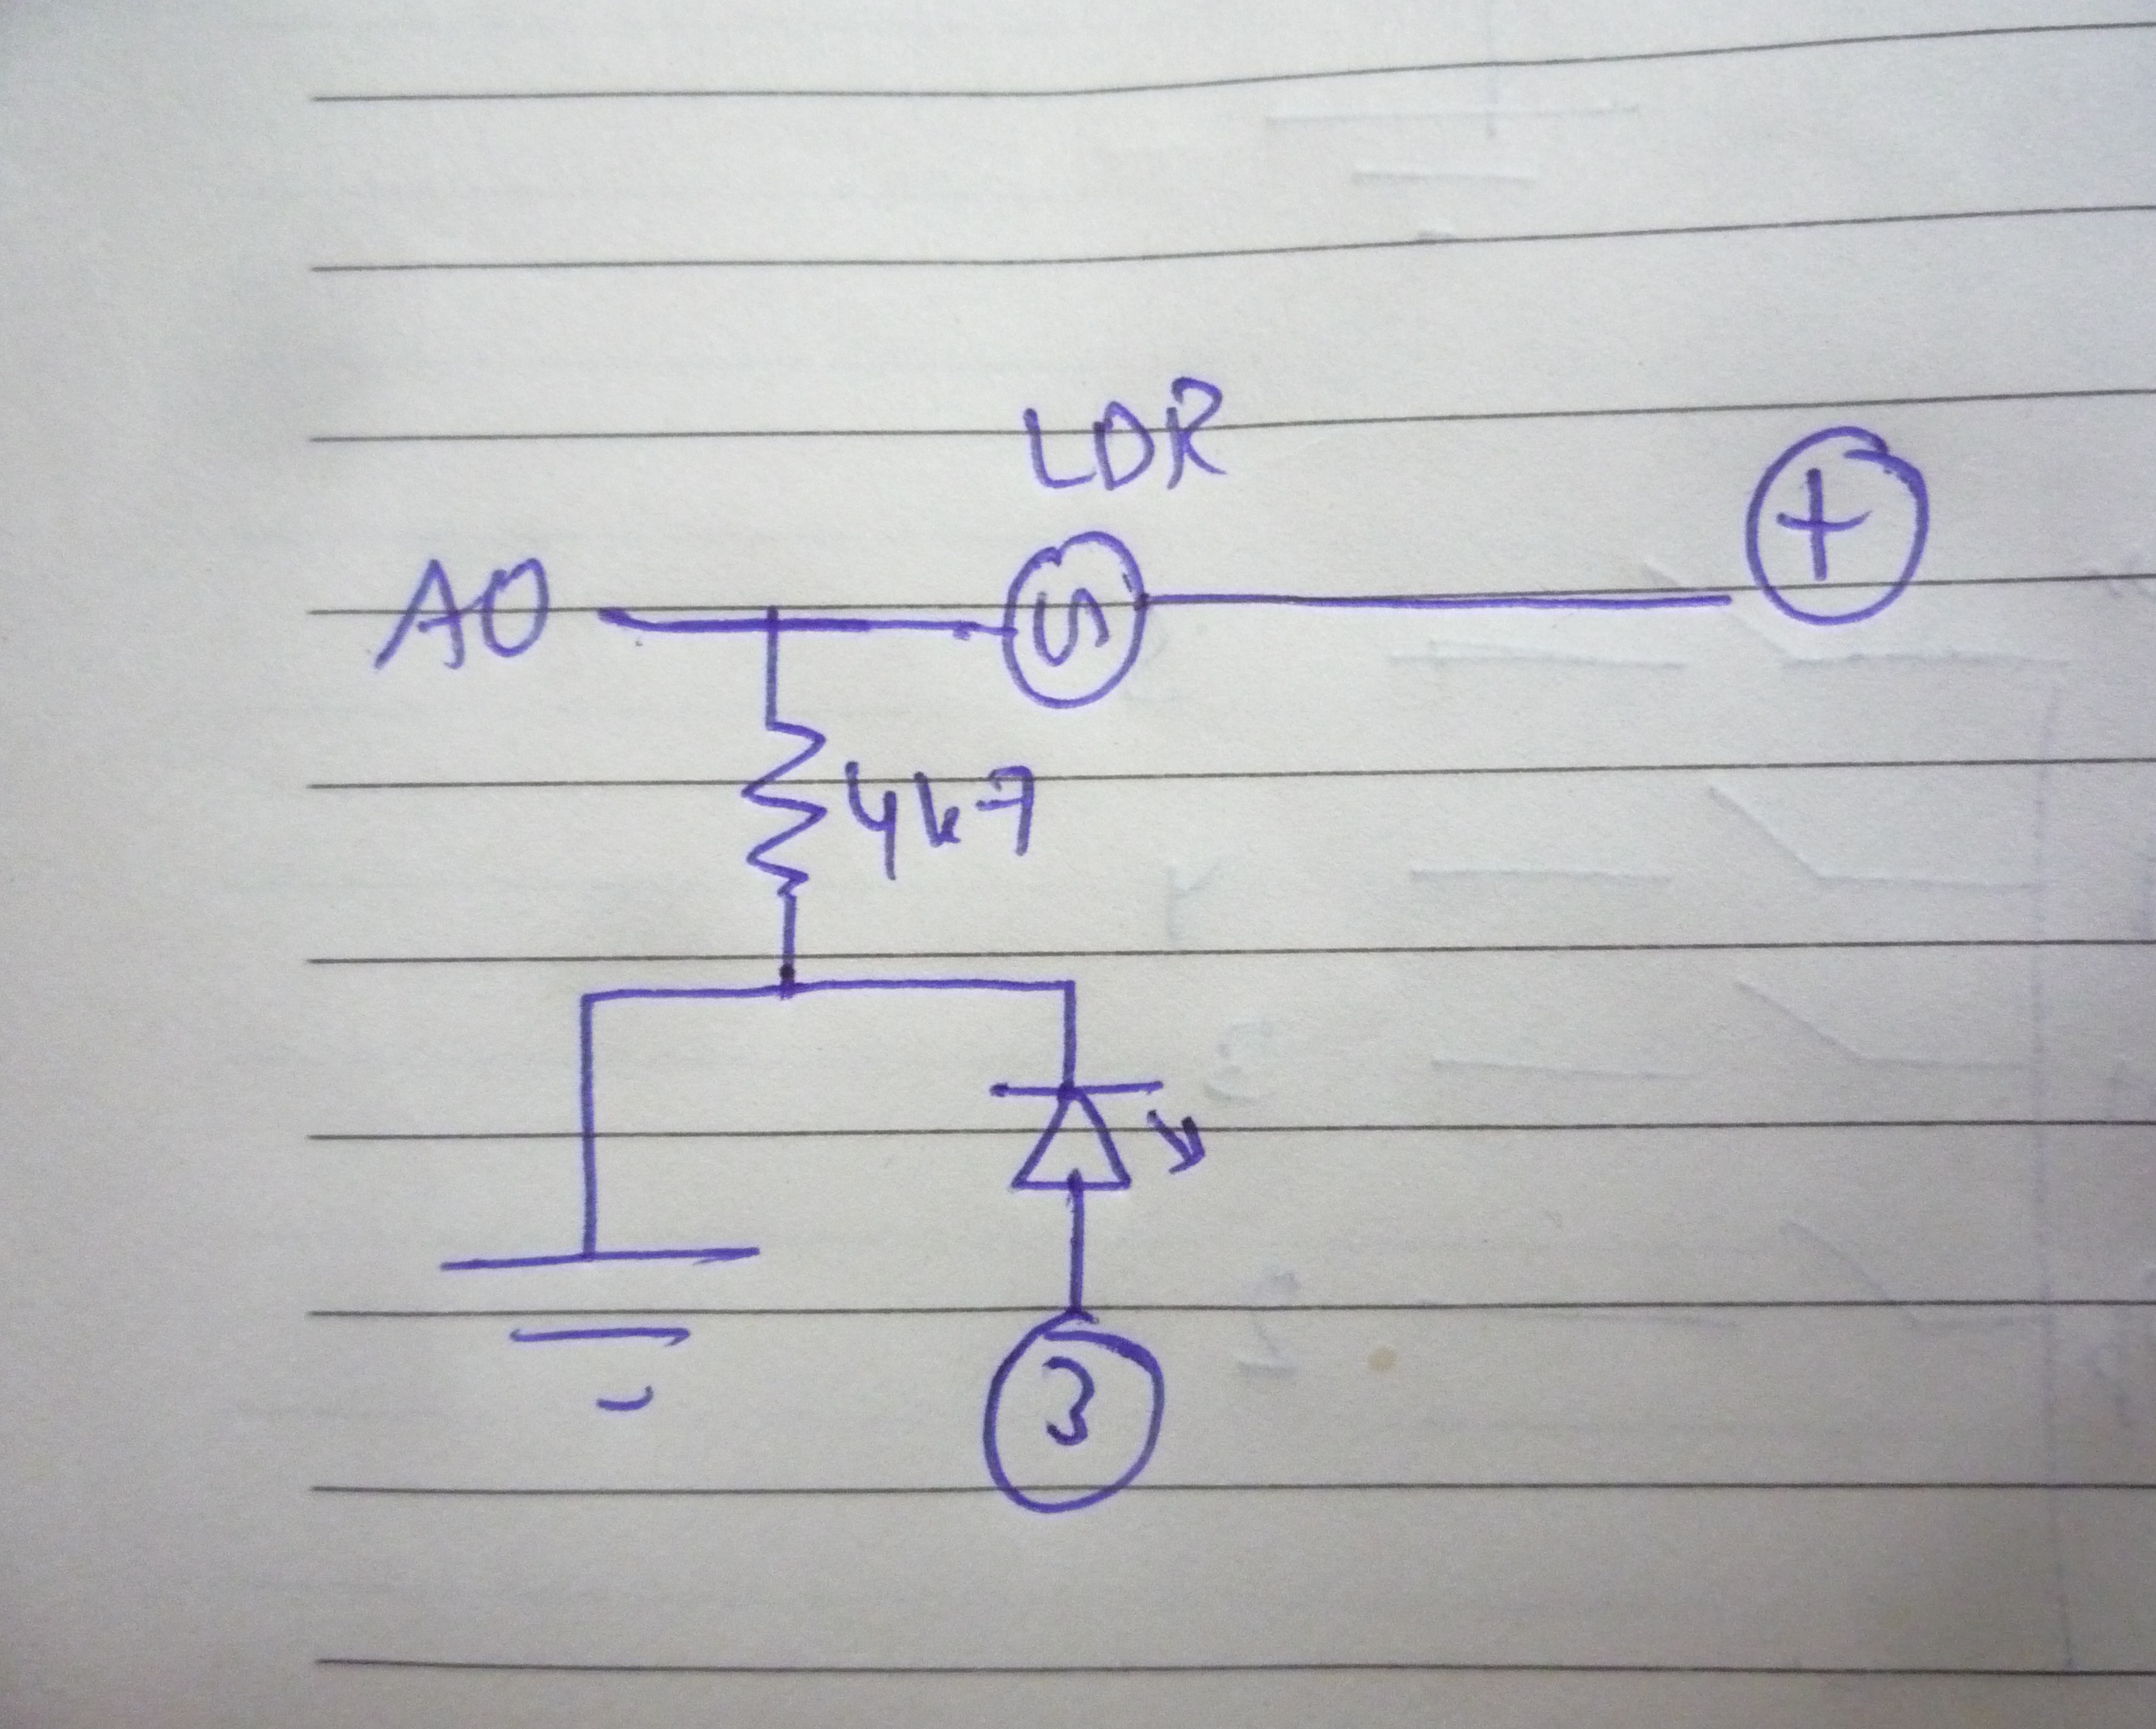 LDR
+
A0
4k7
3